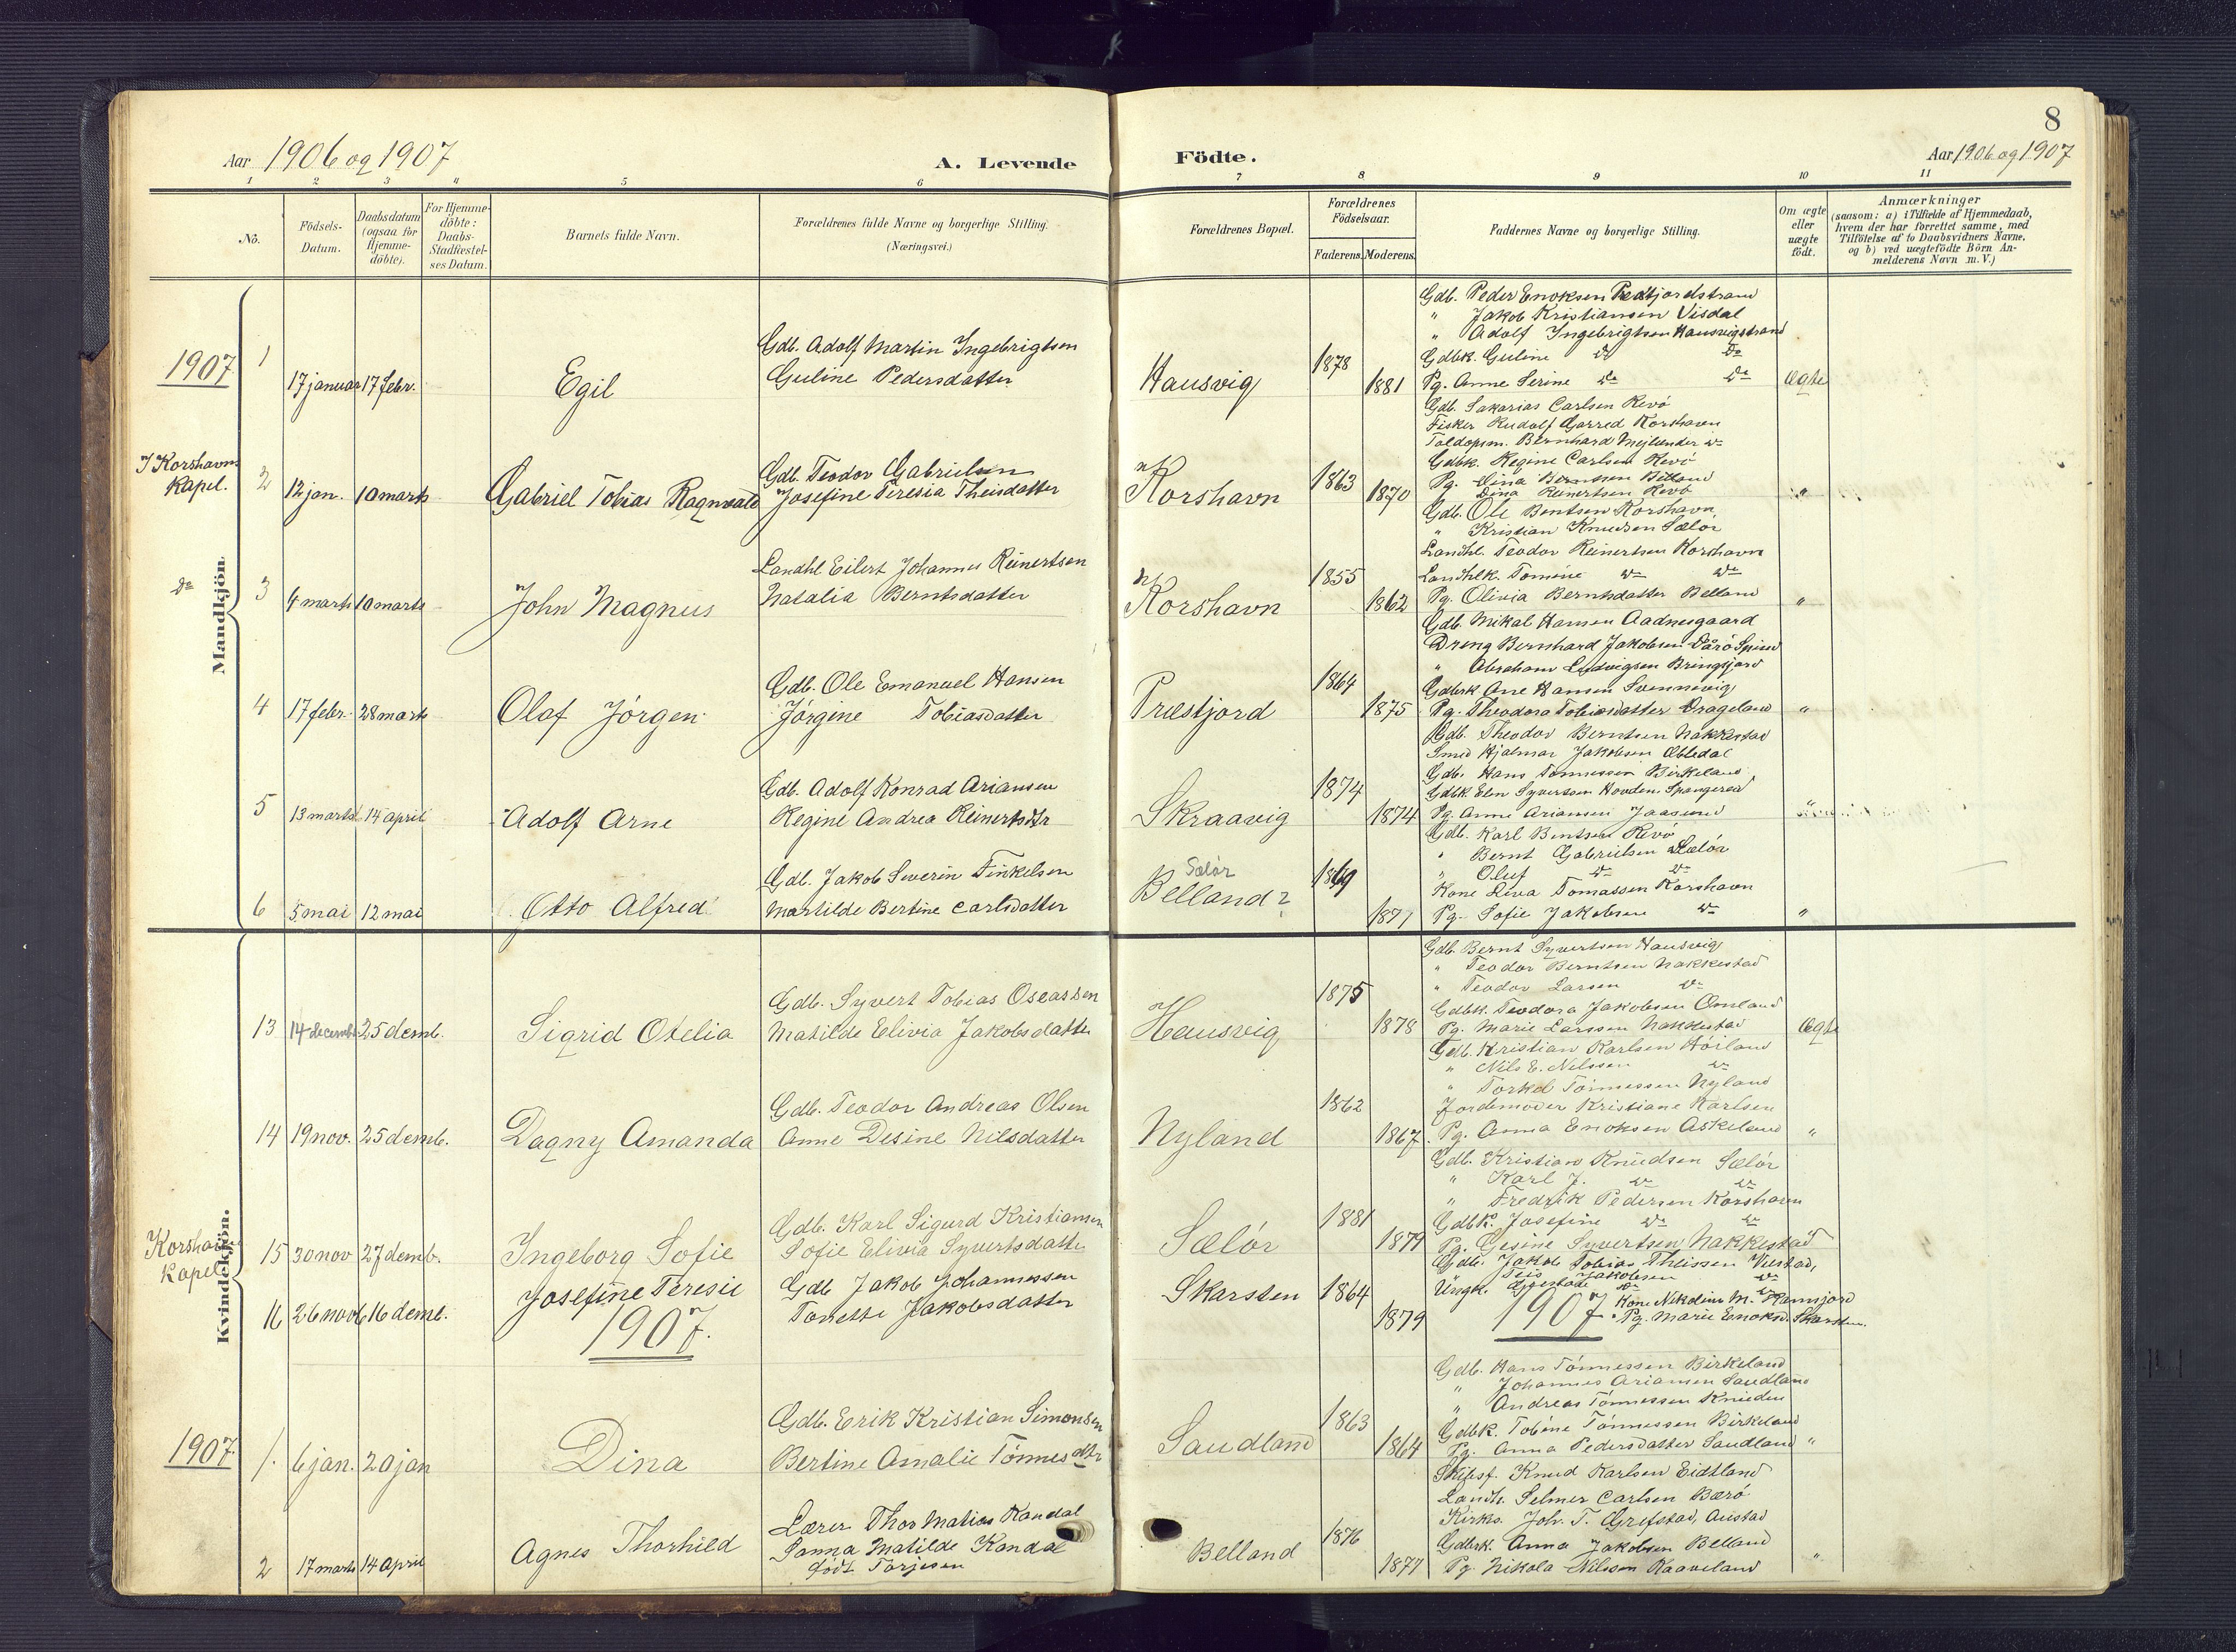 8
Aar 1906 og 1907
A. Levende
Födte.
Aar 1906 og 1907
1 2 3 " 5 6 7 8 9 10 11
No.
Födsels-
Datum.
Daabsdatum
(ogsaa for
Hjemme-
döbte).
For Hjemme-
döbte:
Daabs-
Stadfæstel-
ses Datum.
Barnets fulde Navn.
Forældrenes fulde Navne og borgerlige Stilling.
(Næringsvei.)
Forældrenes Bopæl.
Forældrenes
Födselsaar.
Faderens.
Moderens.
Faddernes Navne og borgerlige Stilling.
Om ægte
eller
uægte
födt.
Anmærkninger
(saasom: a) i Tilfælde af Hjemmedaab,
hvem der har forrettet samme, med
Tilföielse af to Daabsvidners Navne,
og b) ved uægtefödte Börn An-
melderens Navn m. V.)
Mandkjön.
1907
1 17 januar 17 febr. Egil
Gdb. Adolf Martin Ingebrigtsen
Guline Pedersdatter
Hausvig 1878 1881
Gdb. Peder Enoksen
" Jakob Kristiansen Visdal
" Adolf Ingebrigtsen Hausvigstrand
Gdbk. Guline do do
Pg. Anne Serine do do ægte
I Korshavns
Kapel.
2 12 jan. 10 marts Gabriel Tobias Ragnvald
Gdb. Teodor Gabrielsen
Josefine Teresia Theisdatter
Korshavn 1863 1870
Gdb. Sakarias Carlsen Revö
Fisker Rudolf Garred Korshavn
Toldopsm. Bernhard Mejlænder do
Gdbk. Regine Carlsen Revö
Pg. Dina Berntsen Belland
Dina Reinertsen Revö "
do
3 4 marts 10 marts John Magnus
Landhl. Eilert Johannes Reinertsen
Natalia Berntsdatter
Korshavn 1855 1862
Gdb. Ole Bentsen Korshavn
" Kristian Knudsen Sælör
Landhl. Teodor Reinertsen Korshavn
Landhlk. Tomine do do
Pg. Olivia Berntsdatter Belland "
4 17 febr. 28 marts Olaf Jörgen
Gdb. Ole Emanuel Hansen
Jörgine Tobiasdatter
Præstjord 1864 1875
Gdb. Mikal Hansen Aadnesgaard
Dreng Bernhard Jakobsen Spind
" Abraham Ludvigsen Bringsjord
Gdbrk. Ane Hansen Svennevig
Pg. Theodora Tobiasdatter Drageland "
5 13 marts 14 april Adolf Arne
Gdb. Adolf Konrad Ariansen
Regine Andrea Reinertsdtr
Skraavig 1874 1874
Gdb. Theodor Berntsen Nakkestad
Smed Hjalmar Jakobsen Æbledal
Gdb. Hans Tönnessen Birkeland
Gdbk. Elen Syvertsen Hovden, Spangereid
Pg. Anne Ariansen Jaasund "
6 5 mai 12 mai Otto Alfred
Gdb. Jakob Severin Tinkelsen
Martilde Bertine Carlsdatter
Sælör
Belland? 1869 1871
Gdb. Karl Bentsen Revö
" Bernt Gabrielsen Sælör
" Oluf do do
Kone Lina Tomassen Korshavn
Pg. Sofie Jakobsen do "
Kvindekjön.
13 14 decemb. 25 decmb. Sigrid Otelia
Gdb. Syvert Tobias Oseassen
Matilde Elivia Jakobsdatter
Hausvig 1875 1878
Gdb. Bernt Syvertsen Hausvig
" Teodor Berntsen Nakkestad
" Teodor Larsen do
Gdbk. Teodora Jakobsen Omland
Pg. Marie Larssen Nakkestad ægte
14 19 nov. 25 decmb. Dagny Amanda
Gdb. Teodor Andreas Olsen
Anne Desine Nilsdatter
Nyland 1862 1867
Gdb. Kristian Karlsen Höiland
" Nils E. Nilssen do
" Torkel Tönnessen Nyland
Jordemoder Kristiane Karlsen
Pg. Anna Enoksen Askeland "
Korshavns
Kapel
15 30 nov 27 decmb. Ingeborg Sofie
Gdb. Karl Sigurd Kristiansen
Sofie Elivia Syvertsdatter
Sælör 1881 1879
Gdb. Kristian Knudsen Sælör
" Karl J. do do
" Fredrik Pedersen Korshavn
Gdbk. Josefine do do
Pg. Gesine Syvertsen Nakkestad "
16 26 nov 16 decmb. Josefine Teresie
Gdb. Jakob Johannessen
Tonette Jakobsdatter
Skarsten 1864 1879
Gdb. Jakob Tobias Theissen
" Teis Jakobsen do
Ungk.
Kone Nikoline M. Ramsjord
Pg. Marie Enoksd. Skarsten.
1907.
1907
1907
1. 6 jan. 20 jan Dina
Gdb. Erik Kristian Simonsen
Bertine Amalie Tönnesdtr
Saudland 1863 1864
Gdb. Hans Tönnessen Birkeland
" Johannes Ariansen Saudland
" Andreas Tönnessen Knieden
Gdbk. Tobine Tönnessen Birkeland
Pg. Anna Pedersdatter Saudland "
2 17 marts 14 april Agnes Thorhild
Lærer Thor Matias Kandal
Sanna Matilde Kandal
födt Torjesen
Belland 1876 1877
Skibsf. Knud Karlsen Eidtland
Landh. Selmer Carlsen Bærö
Kirks. Joh. T. Grefstad, Austad
Gdbrk. Anna Jakobsen Belland
Pg. Nikola Nilssen Kaaveland "